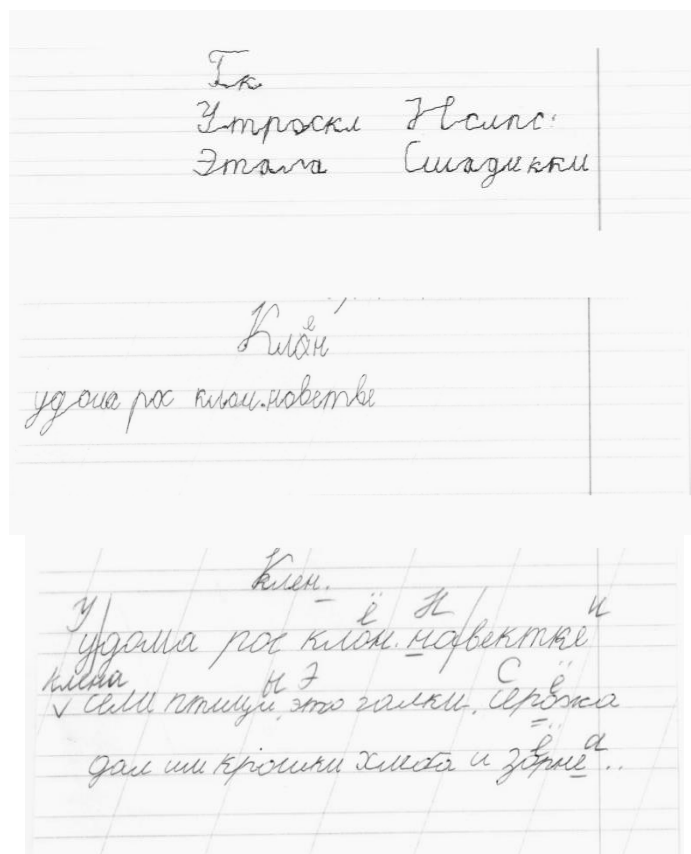 Гк
Утроскл Нслпс.
Этала Сшадикки
ё
Клан
удома рос клан.наветве
Клен.
У ё Н и
удома рос клон. навектке
клена ы Э С ё
√ сели птици, это галки, серожа
ё а
дал им крошки хлеба и зорне..